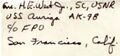 Ens. H. E. West Jr., SC, USNR
USS Auriga AK-98
% FPO
San Francisco, Calif.